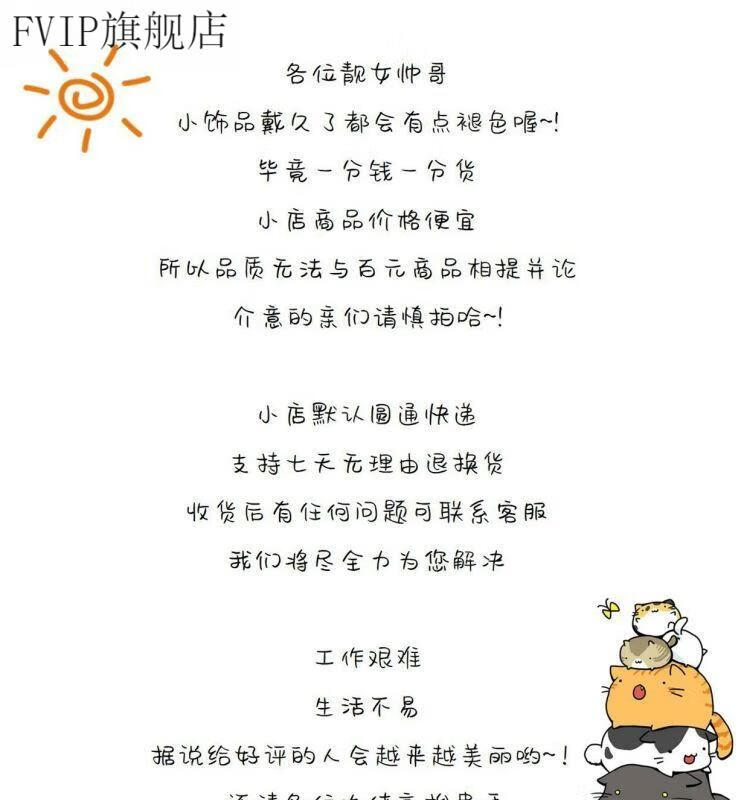 FVIP旗舰店
各位靓女帅哥
小饰品戴久了都会有点褪色喔~!
毕竟一分钱一分货
小店商品价格便宜
所以品质无法与百元商品相提并论
介意的亲们请慎拍哈~!
小店默认圆通快递
支持七天无理由退换货
收货后有任何问题可联系客服
我们将尽全力为您解决
工作艰难
生活不易
据说给好评的人会越来越美丽哟~!